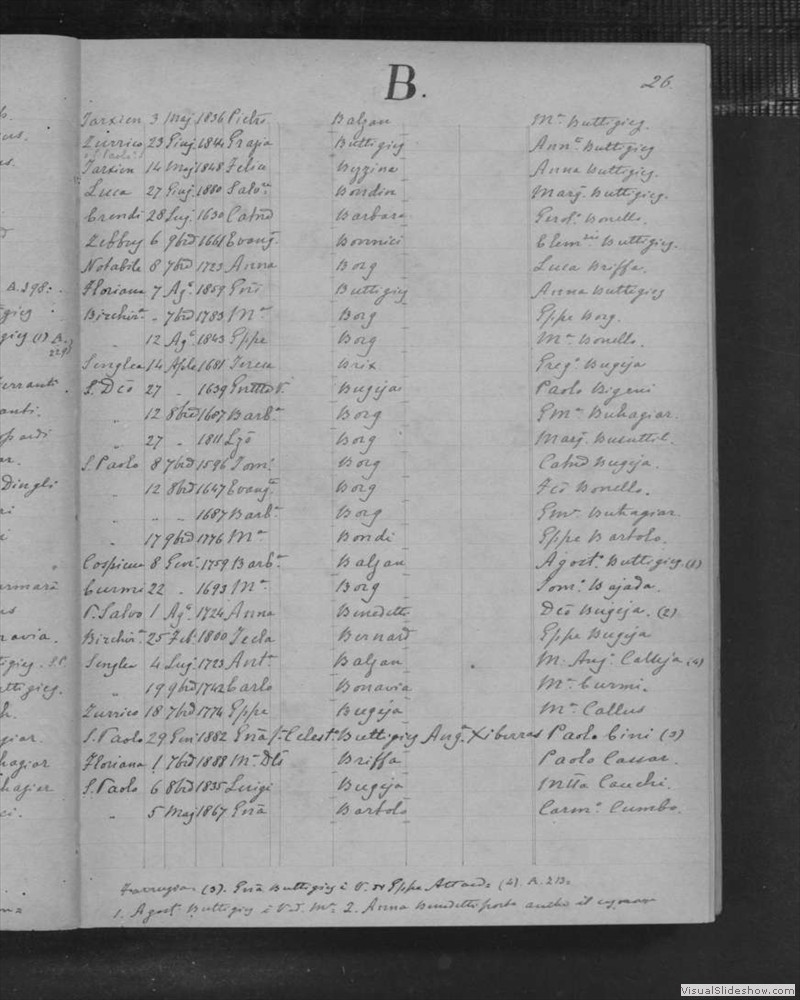 B.
26
Tarxien 3 Maj 1836 Pietro Balzan Mª Buttigieg.
Zurrico 23 Giug 1844 Grazia Buttigieg Annª Buttigieg
S. Paolo
Tarxien 14 Maj 1848 Felic Byzina Anna Buttigieg.
Luca 27 Giug 1880 Salvre Bondin Marg. Buttigieg.
Crendi 28 Lug. 1630 Catnd Barbara Gerolª Bonello.
Zebbug 6 9brd 1661 Evang. Bonnici Buttigieg.
Notabile 8 7brd 1723 Anna Borg Luca Briffa.
Floriana 7 Agº 1859 Buttigieg Anna Buttigieg
Birchirª - 7brd 1783 Mª Borg Gppe Borg.
" 12 Agº 1843 Gppe Borg Mª Bonello.
Senglea 14 Aple 1681 Teresa Brix Gregº Bugeja
S. Dcō 27 " 1639 Bugeja Paolo Bigeni
" 12 8brd 1687 Barbª Borg Gmª Buhagiar.
" 27 - 1811 Borg Marg. Busuttil.
S. Paolo 8 7brd 1596 Tomº Borg Catnd Bugeja.
" 12 8brd 1647 Evangª Borg Fcō Bonello.
" " " 1687 Barbª Borg Gmª Buhagiar
" 17 9brd 1776 Mª Bondi Gppe Bartolo.
Cospicua 8 Genº 1759 Barbª Balzan Agostº Buttigieg. (1)
Curmi 22 " 1693 Mª Borg Tomº Bajada.
P. Salvo 1 Agº 1724 Anna Benedetti Dcō Bugeja. (2)
Birchirª 25 Feb. 1800 Tecla Bernard Gppe Bugeja
Senglea 4 Lug. 1723 Antª Balzan M. Ang. Calleja (4)
" 19 9brd 1742 Carlo Bonavia Mª Curmi.
Zurrico 18 7brd 1774 Gppe Bugeja Mª Callus
S. Paolo 29 Gen 1882 Celest. Buttigieg Angª Xiberras Paolo Cini (3)
Floriana 1 7brd 1888 Mª Briffa Paolo Cassar.
S. Paolo 6 8brd 1835 Luigi Bugeja Cauchi.
" 5 Maj 1867 Bartolo Carmº Cumbo.
Farrugia (3). Buttigieg è V. di Gppe Attard (4). A. 213.
1. Agost. Buttigieg è V. d. Mª 2. Anna Benedetti porta anche il cognome
VisualSlideshow.com